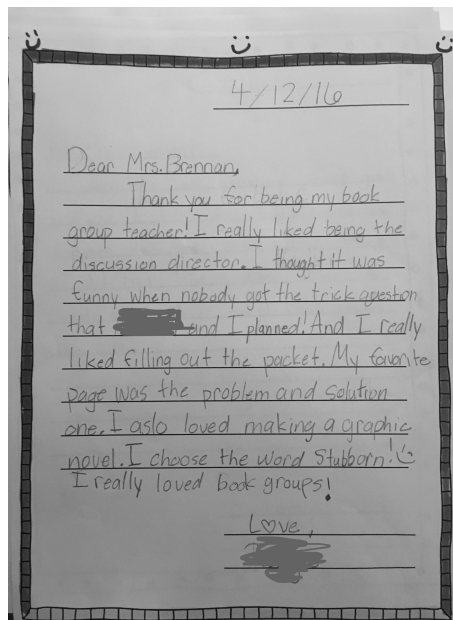 4/12/16
Dear Mrs. Brennan,
Thank you for being my book
group teacher! I really liked being the
discussion director. I thought it was
funny when nobody got the trick question
that and I planned! And I really
liked filling out the packet. My favorite
page was the problem and solution
one. I aslo loved making a graphic
novel. I choose the word Stubborn!
I really loved book groups!
Love,